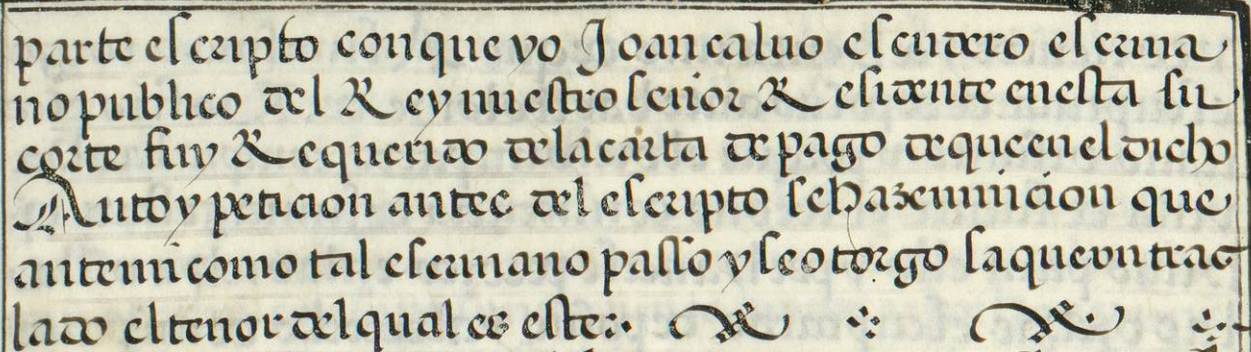 parte escripto con que yo Joan caluo escudero escriua
no publico del Rey nuestro señor Residente en esta su
corte fuy Requerido de la carta de pago de que en el dicho
Auto y peticion antes del escripto se haze mincion que
ante mi como tal escriuano passo y se otorgo saque vn tras
lado el tenor del qual es este: